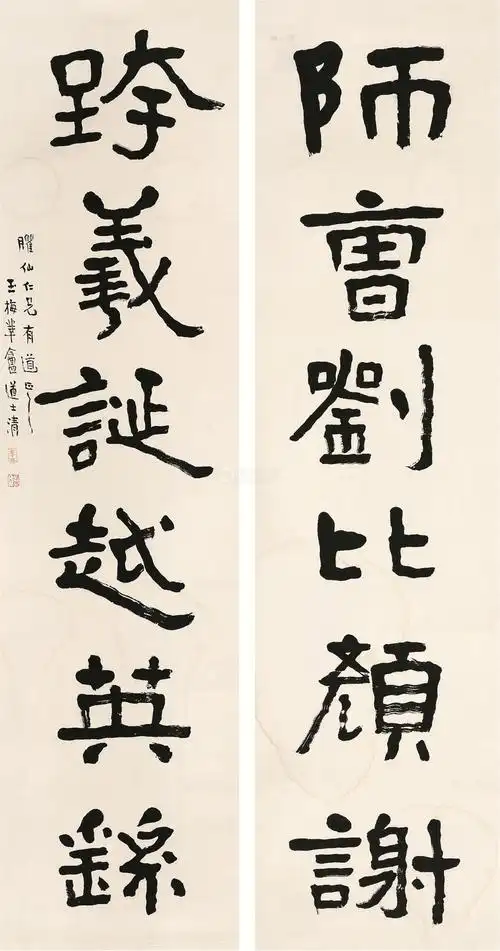 師曹劉比顏謝
跨羲誕越英繇
臞仙仁兄有道正
玉梅華盦道士清